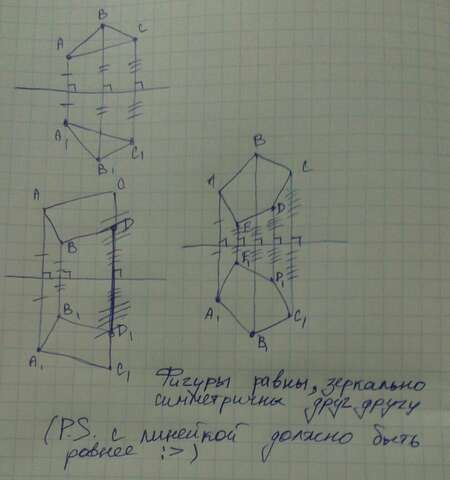 B
A C
A₁ C₁
B₁
A C
B D
B₁ D₁
A₁ C₁
B
A C
E D
E₁ D₁
A₁ C₁
B₁
Фигуры равны, зеркально
симметричны друг другу
(P.S. с линейкой должно быть
равнее :>)